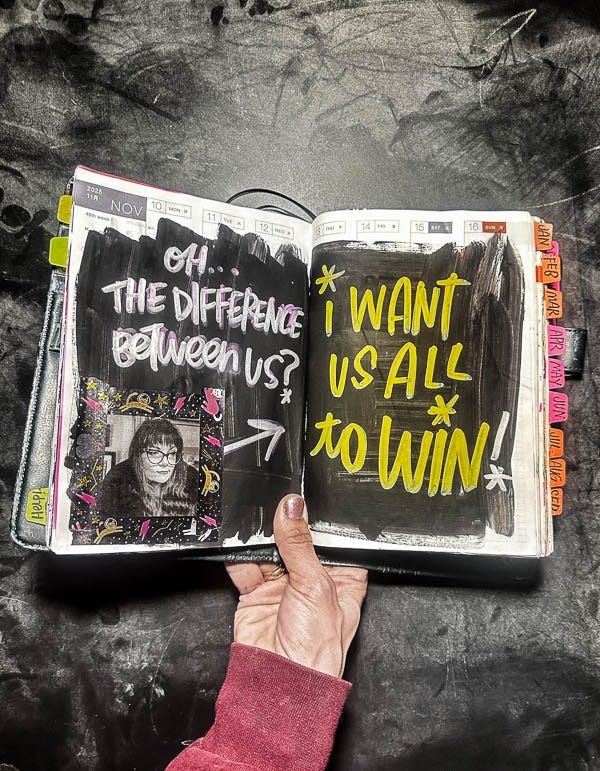 2025
11月
NOV
46th week
10 MON 月
11 TUE 火
12 WED 水
13 THU 木
14 FRI 金
15 SAT 土
16 SUN 日
OH...
THE DIFFERENCE
BETWEEN US?
*
*
I WANT
US ALL
*
to WIN!
*
JAN
FEB
MAR
APR
MAY
JUN
JUL
AUG
SEP